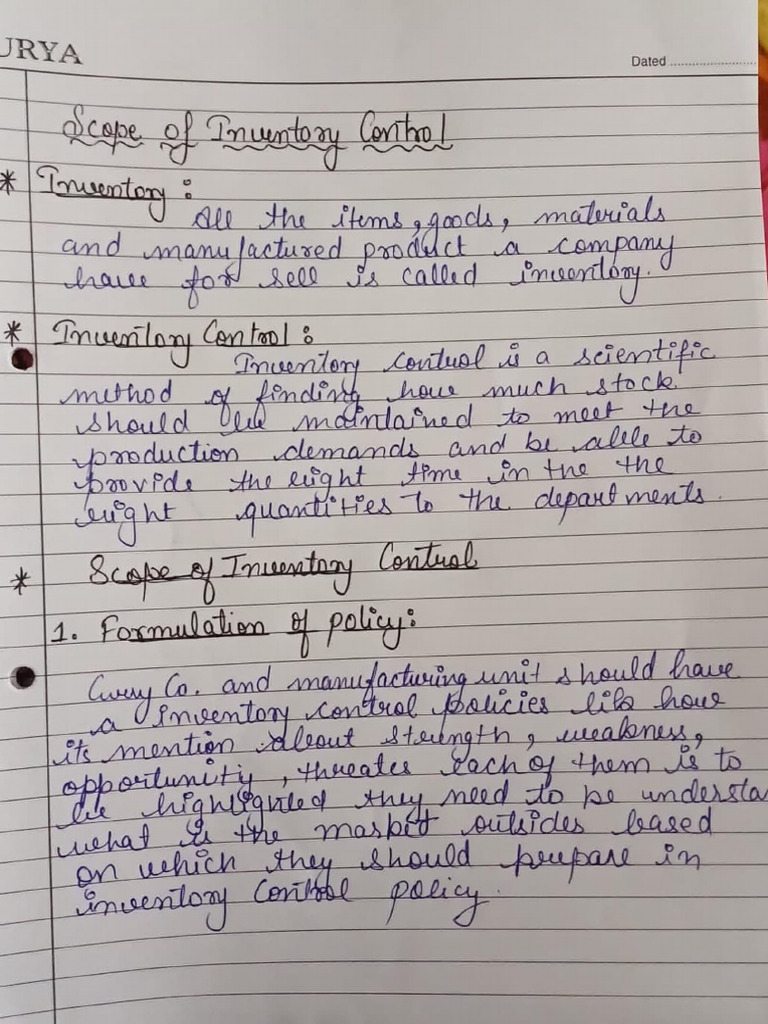 URYA
Dated
Scope of Inventory Control
* Inventory :
All the items, goods, materials
and manufactured product a company
have for sell is called inventory.
* Inventory Control :
Inventory control is a scientific
method of finding how much stock
should be maintained to meet the
production demands and be able to
provide the right time in the the
right quantities to the departments.
* Scope of Inventory Control
1. Formulation of policy:
Every Co. and manufacturing unit should have
a inventory control policies like how
its mention about strength, weakness,
opportunity, threates each of them is to
be highlighted they need to be understa
what is the market outsides based
on which they should prepare in
inventory Control policy.